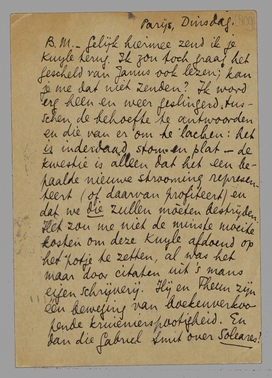 Parijs, Dinsdag.
B.M. – Gelijk hiermee zend ik je
Kuyle terug. Ik zou toch graag het
gescheld van Janus ook lezen; kan
je me dat niet zenden? Ik word
erg heen en weer geslingerd tus-
schen de behoefte te antwoorden
en die van er om te lachen: het
is inderdaad stom en plat – de
kwestie is alleen dat het een be-
paalde nieuwe strooming represen-
teert (of daarvan profiteert) en
dat we die zullen moeten bestrijden.
Het zou me niet de minste moeite
kosten om deze Kuyle afdoend op
het potje te zetten, al was het
maar door citaten uit 's mans
eigen schrijverij. Hij en Theun zijn
één beweging van boekenverkoo-
pende kruienierspootigheid. En
dan die Gabriel Smit over Soleares!